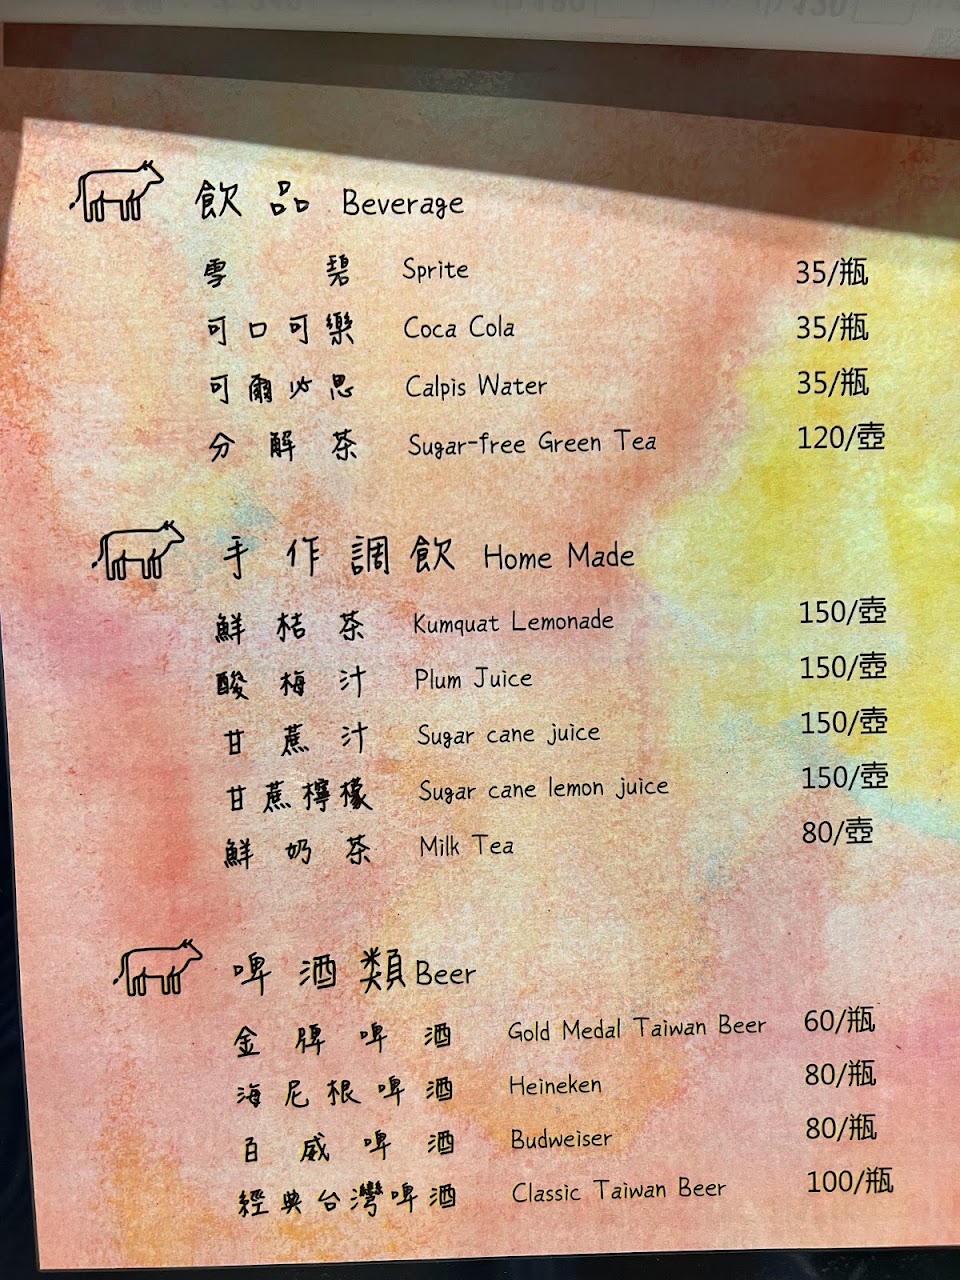 飲品 Beverage
雪碧 Sprite 35/瓶
可口可樂 Coca Cola 35/瓶
可爾必思 Calpis Water 35/瓶
分解茶 Sugar-free Green Tea 120/壺
手作調飲 Home Made
鮮桔茶 Kumquat Lemonade 150/壺
酸梅汁 Plum Juice 150/壺
甘蔗汁 Sugar cane juice 150/壺
甘蔗檸檬 Sugar cane lemon juice 150/壺
鮮奶茶 Milk Tea 80/壺
啤酒類 Beer
金牌啤酒 Gold Medal Taiwan Beer 60/瓶
海尼根啤酒 Heineken 80/瓶
百威啤酒 Budweiser 80/瓶
經典台灣啤酒 Classic Taiwan Beer 100/瓶